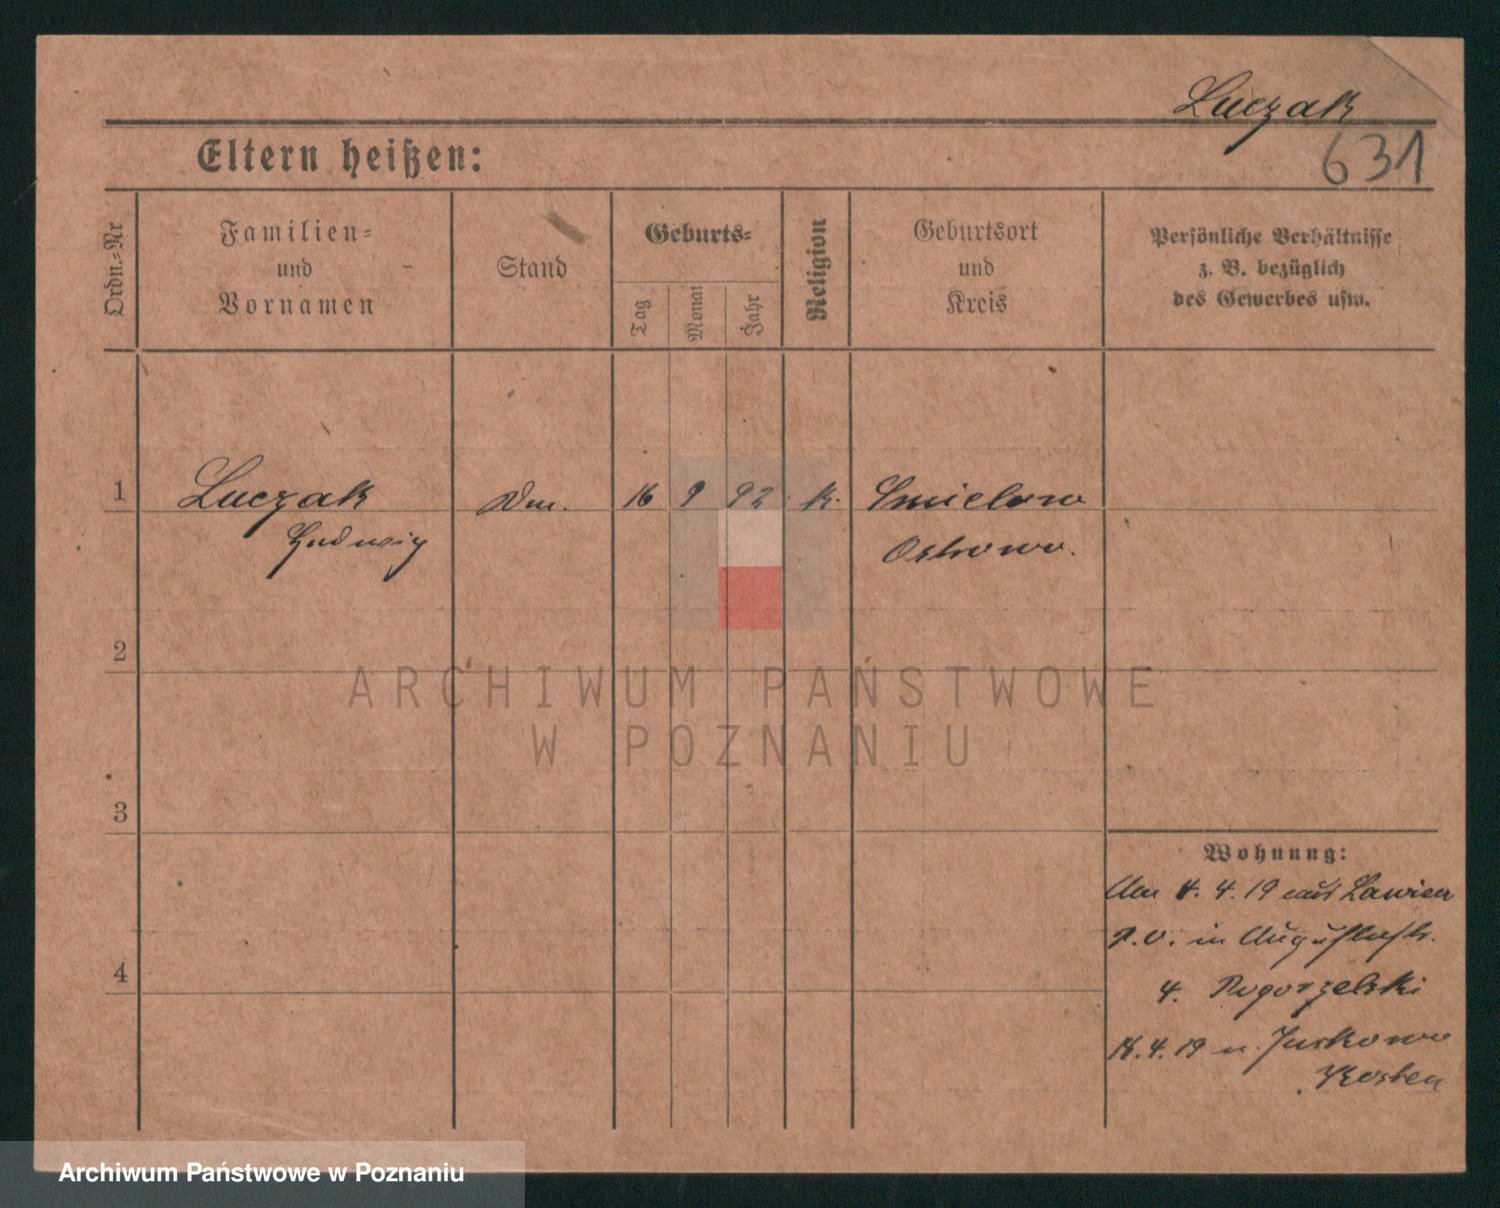 Luczak
631
Eltern heißen:
Ordn.-Nr
Familien-
und
Vornamen
Stand
Geburts-
Tag
Monat
Jahr
Religion
Geburtsort
und
Kreis
Persönliche Verhältnisse
z. B. bezüglich
des Gewerbes usw.
1 Luczak 16 9 92 k. Smielowo
Ludwig Ostrowo.
2
ARCHIWUM PAŃSTWOWE
W POZNANIU
3
Wohnung:
Am 4. 4. 19 aus
in Augustastr.
4
4. Pogorzelski
18. 4. 19 n. Jurkowo
Kosten
Archiwum Państwowe w Poznaniu